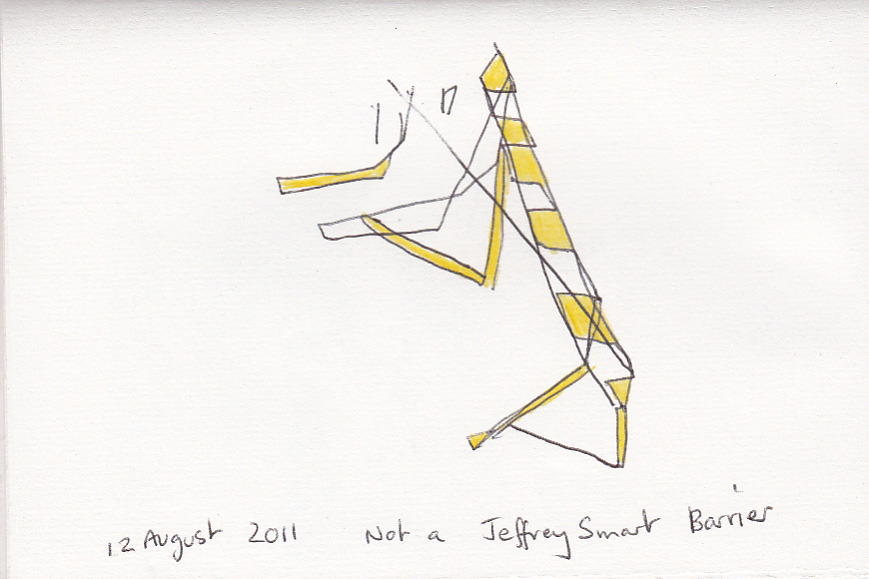 12 August 2011 Not a Jeffrey Smart Barrier